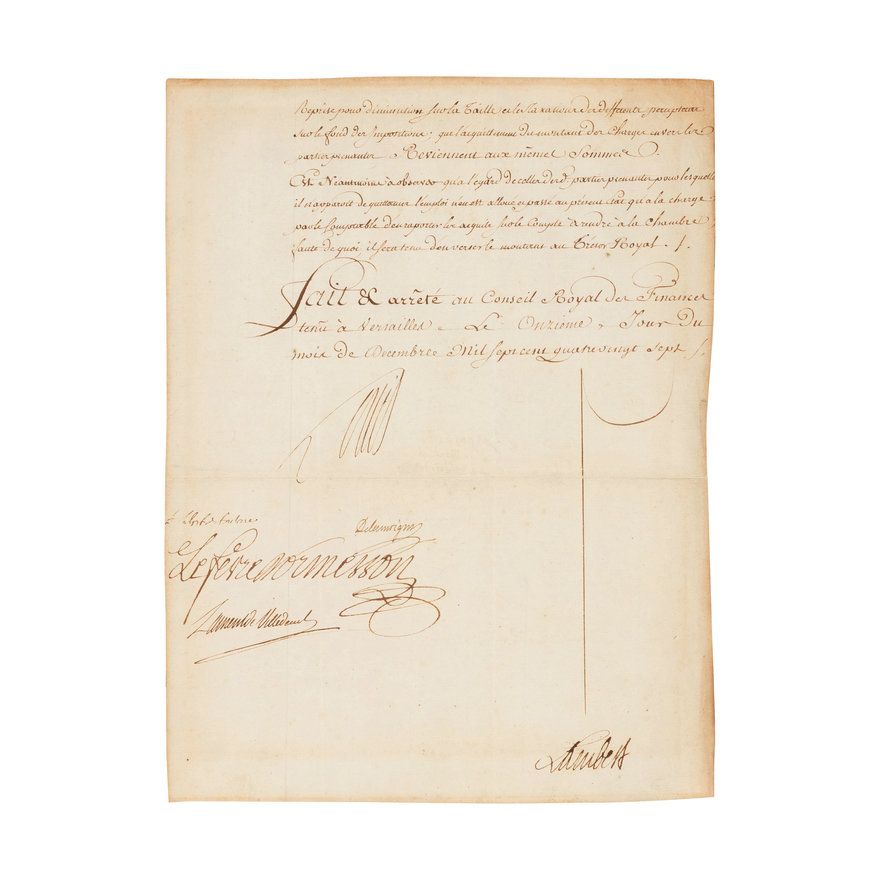 Reprise pour diminution sur la Taille et les Taxations des differents percepteurs
sur le fond des Impositions; que l'aquittement du montant des Charges envers les
parties prenantes Reviennent aux mêmes Sommes.
Est Néantmoins à observer qu'a l'egard de celles desd. parties prenantes pour lesquelles
il n'apparoit de quittance l'emploi n'en est alloué et passé au présent Etat qu'a la charge
par le Comptable d'en raporter les acquits sur le Compte à rendre à la Chambre
faute de quoi il sera tenu d'en verser le montant au Trésor Royal. /.
Fait & arrêté au Conseil Royal des Finances
tenu à Versailles Le Onzième Jour Du
mois de Decembre Mil Sept cent quatre vingt Sept /.
Louis
Delamoignon
Lefevre Dormesson
Laurent de Villedeuil
Lambert